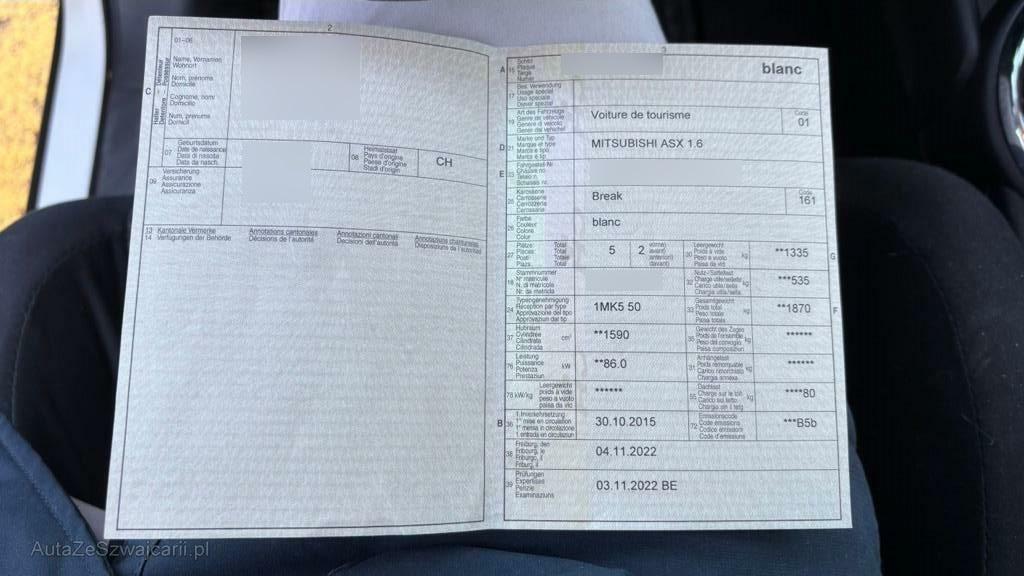 2
01-06
Name, Vornamen
Wohnort
Nom, prénoms
Domicile
Cognome, nomi
Domicilio
Num, prenums
Domicil
C
07
Geburtsdatum
Date de naissance
Data di nascita
Data da nasch.
08
Heimatstaat
Pays d'origine
Paese d'origine
Stadi d'origin
CH
09
Versicherung
Assurance
Assicurazione
Assicuranza
13 Kantonale Vermerke
14 Verfügungen der Behörde
Annotations cantonales
Décisions de l'autorité
Annotazioni cantonali
Decisioni dell'autorità
Annotaziuns chantunalas
Disposiziuns da l'autoritad
3
A 15
Schild
Plaque
Targa
Numer
blanc
17
Bes. Verwendung
Usage spécial
Uso speciale
Diever spezial
19
Art des Fahrzeugs
Genre de véhicule
Genere di veicolo
Gener dal vehichel
Voiture de tourisme
Code
01
D 21
Marke und Typ
Marque et type
Marca e tipo
Marca e tip
MITSUBISHI ASX 1.6
E 23
Fahrgestell Nr.
Châssis no
Telaio n.
Schassis nr.
25
Karosserie
Carrosserie
Carrozzeria
Carossaria
Break
Code
161
26
Farbe
Couleur
Colore
Color
blanc
27
Plätze: Total
Places: Total
Posti: Totale
Plazs: Total
5
2
vorne)
avant)
anteriori)
davant)
30
Leergewicht
Poids à vide
Peso a vuoto
Paisa da vid
kg
**1335
G
18
Stammnummer
N° matricule
N. di matricola
Nr. da matricla
32
Nutz-/Sattellast
Charge utile/sellette
Carico utile/sella
Chargia utila/sella
kg
***535
24
Typengenehmigung
Réception par type
Approvazione del tipo
Approvaziun dal tip
1MK5 50
33
Gesamtgewicht
Poids total
Peso totale
Paisa totala
kg
**1870
F
37
Hubraum
Cylindrée
Cilindrata
Cilindrada
cm³
**1590
35
Gewicht des Zuges
Poids de l'ensemble
Peso del convoglio
Paisa cumposiziun
kg
******
76
Leistung
Puissance
Potenza
Prestaziun
kW
**86.0
31
Anhängelast
Poids remorquable
Carico rimorchiato
Chargia annexa
kg
******
78 kW/kg
Leergewicht
poids à vide
peso a vuoto
paisa da vid
******
55
Dachlast
Charge sur le toit
Carico sul tetto
Chargia sin il tetg
kg
****80
B 36
1. Inverkehrsetzung
1re mise en circulation
1a messa in circolazione
1. entrada en circulaziun
30.10.2015
72
Emissionscode
Code émissions
Codice emissioni
Code d'emissiuns
***B5b
38
Freiburg, den
Fribourg, le
Friburgo, il
Friburg, il
04.11.2022
39
Prüfungen
Expertises
Perizie
Examinaziuns
03.11.2022 BE
AutaZeSzwajcarii.pl